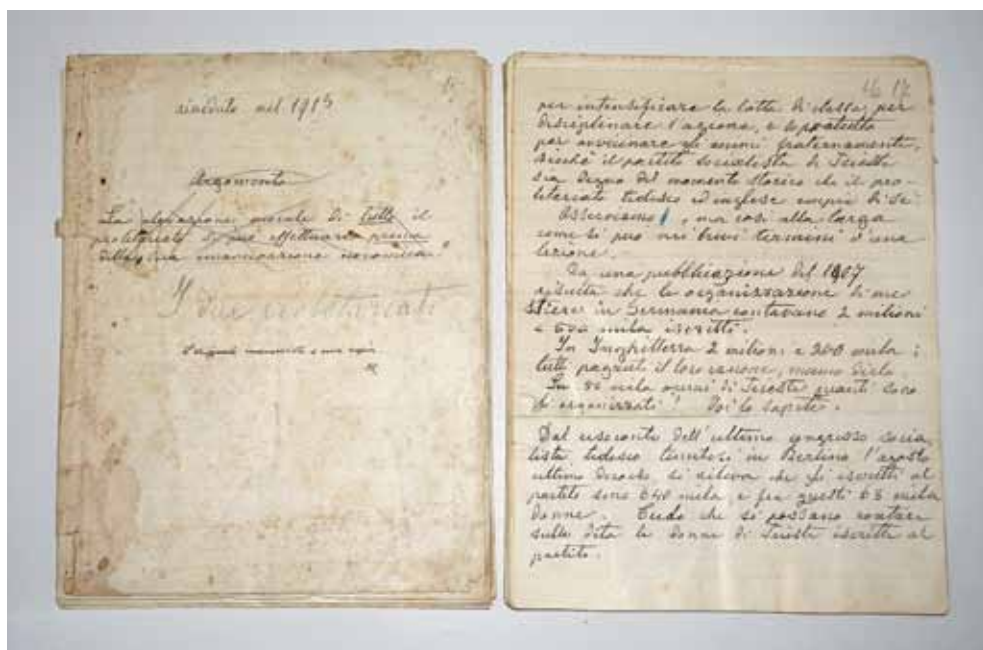 riveduto nel 1913
Argomento
La elevazione morale di tutto il
proletariato si può effettuare prima
della sua emancipazione economica.
I due proletariati
L'original manoscritto e una copia
16 17
per intensificare la lotta di classe, per
disciplinare l'azione, e sopratutto
per avvicinare gli animi fraternamente,
sicchè il partito socialista di Trieste
sia degno del momento storico che il pro-
letariato tedesco ed inglese empie di sè
Osserviamo, ma così alla larga
come si può nei brevi termini d'una
lezione.
Da una pubblicazione del 1907
risulta che le organizzazione di me
stiere in Germania contavano 2 milioni
e 600 mila iscritti.
In Inghilterra 2 milioni e 200 mila i
tutti pagenti il loro
In 80 mila operai di Trieste quanti sono
gli organizzati! Voi lo sapete.
Dal resoconto dell'ultimo congresso socia
lista tedesco tenutosi in Berlino l'agosto
ultimo si rileva che gli iscritti al
partito sono 640 mila e fra questi 63 mila
donne. Credo che si possano contare
sulle dita le donne di Trieste iscritte al
partito.